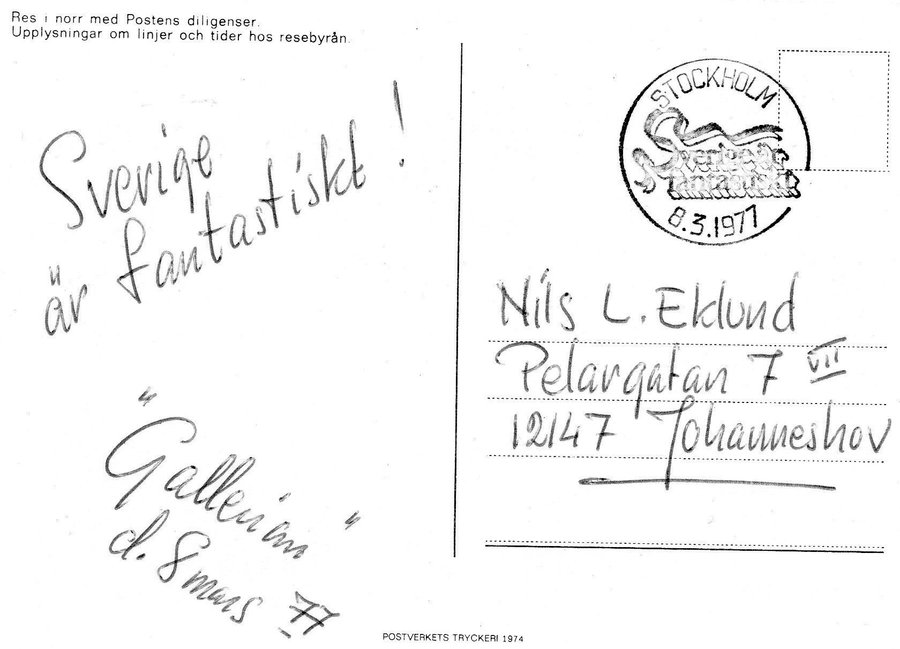 Res i norr med Postens diligenser.
Upplysningar om linjer och tider hos resebyrån.
Sverige
är fantastiskt!
"Gallerian"
d. 8 mars 77
STOCKHOLM
sverige är
fantastiskt
8.3.1977
Nils L. Eklund
Pelargatan 7 VII
12147 Johanneshov
POSTVERKETS TRYCKERI 1974